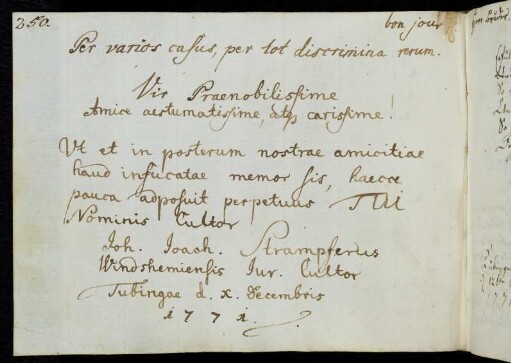 250.
bon jour
Per varios casus, per tot discrimina rerum.
Vir Praenobilissime
Amice aestumatissime, atq carissime!
Ut et in posterum nostrae amicitiae
haud infucatae memor sis, haecce
pauca adposuit perpetuus TUI
Nominis Cultor
Joh. Joach. Strampferus
Windshemiensis Iur. Cultor
Tubingae d. x. Decembris
1771.